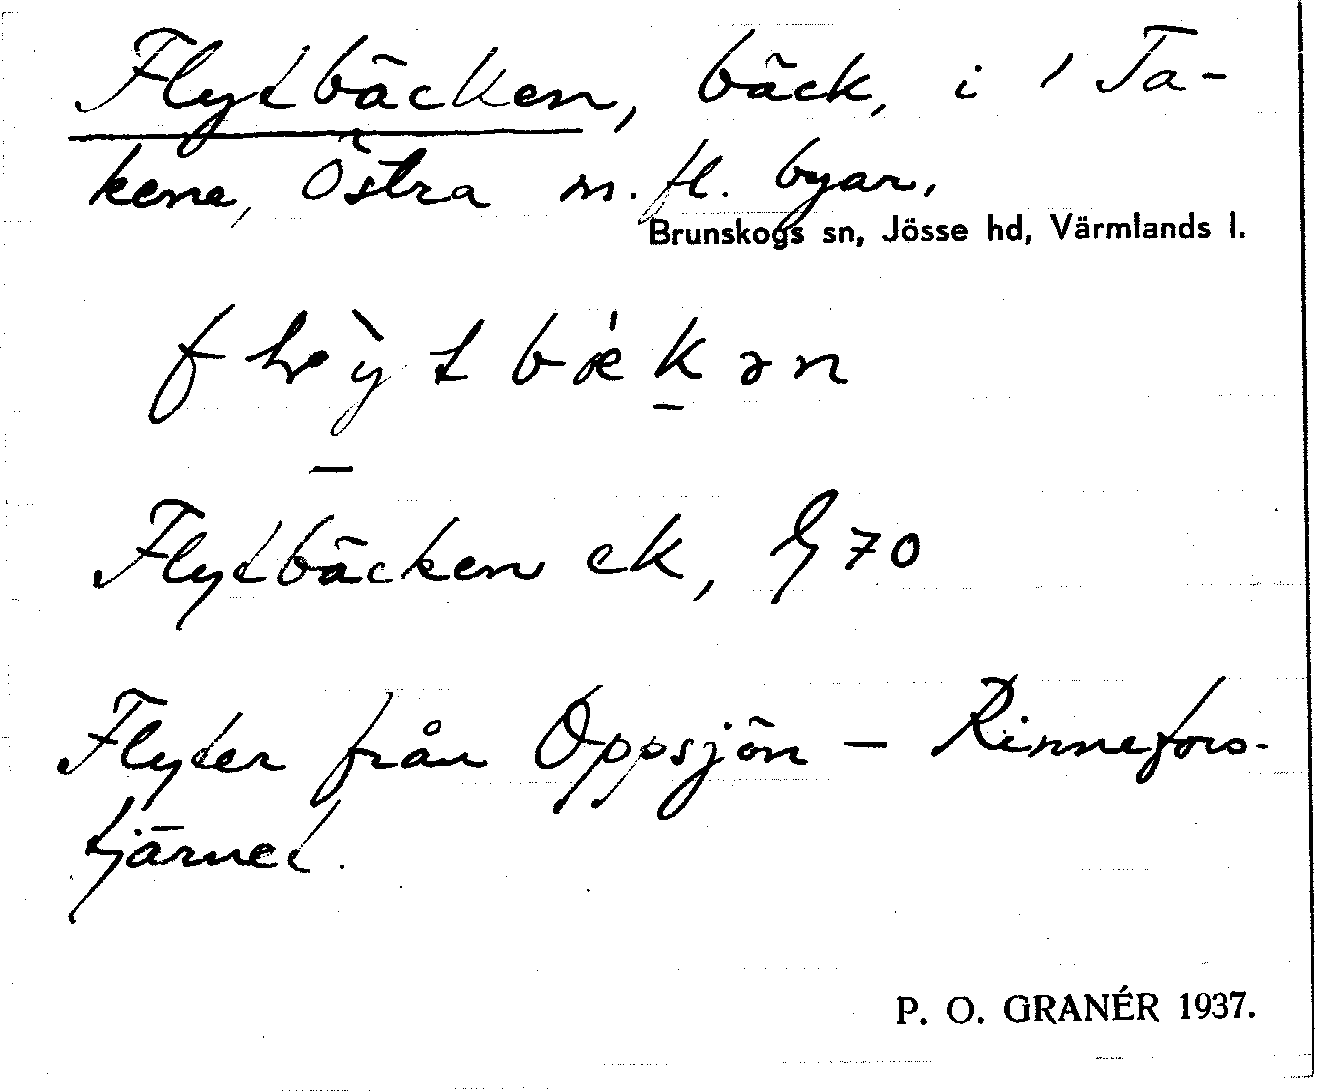 Flytbäcken, bäck, i 1 Ta-
kene, Östra m. fl. byar.
Brunskogs sn, Jösse hd, Värmlands l.
Flytbäcken ek, 70
Flyter från Oppsjön – Rinnefors-
tjärnet.
P. O. GRANÉR 1937.